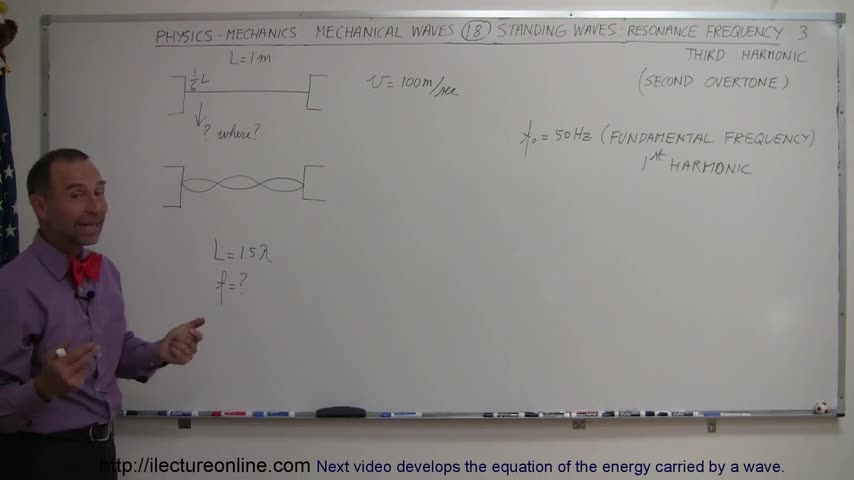 PHYSICS - MECHANICS MECHANICAL WAVES 18 STANDING WAVES RESONANCE FREQUENCY 3
L = 1m
THIRD HARMONIC
(SECOND OVERTONE)
1/6 L
v = 100 m/sec
? where?
f₀ = 50 Hz (FUNDAMENTAL FREQUENCY)
1st HARMONIC
L = 1.5 λ
f = ?
http://ilectureonline.com Next video develops the equation of the energy carried by a wave.